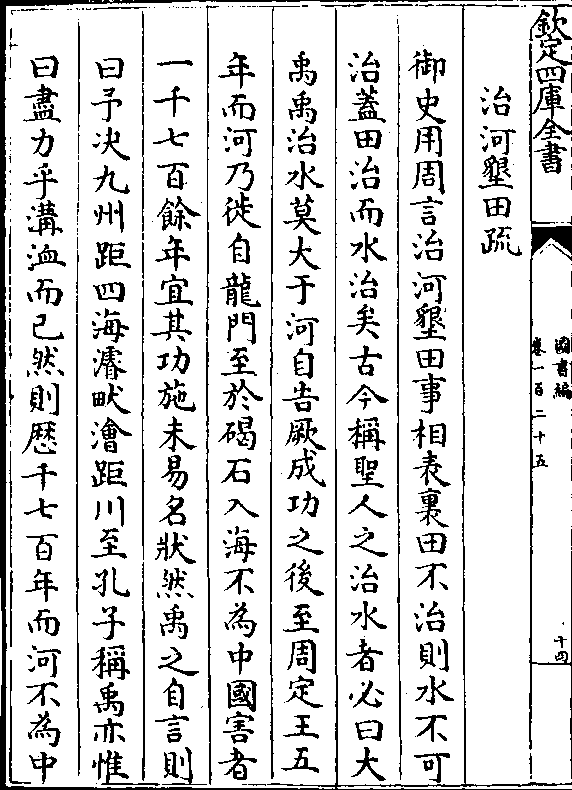 欽定四庫全書
圖書編
卷一百二十五
十四
治河墾田疏
御史用周言治河墾田事相表裏田不治則水不可
治蓋田治而水治矣古今稱聖人之治水者必曰大
禹禹治水莫大于河自告厥成功之後至周定王五
年而河乃徙自龍門至於碣石入海不為中國害者
一千七百餘年宜其功施未易名狀然禹之自言則
曰予决九州距四海濬畎澮距川至孔子稱禹亦惟
曰盡力乎溝洫而已然則歴千七百年而河不為中